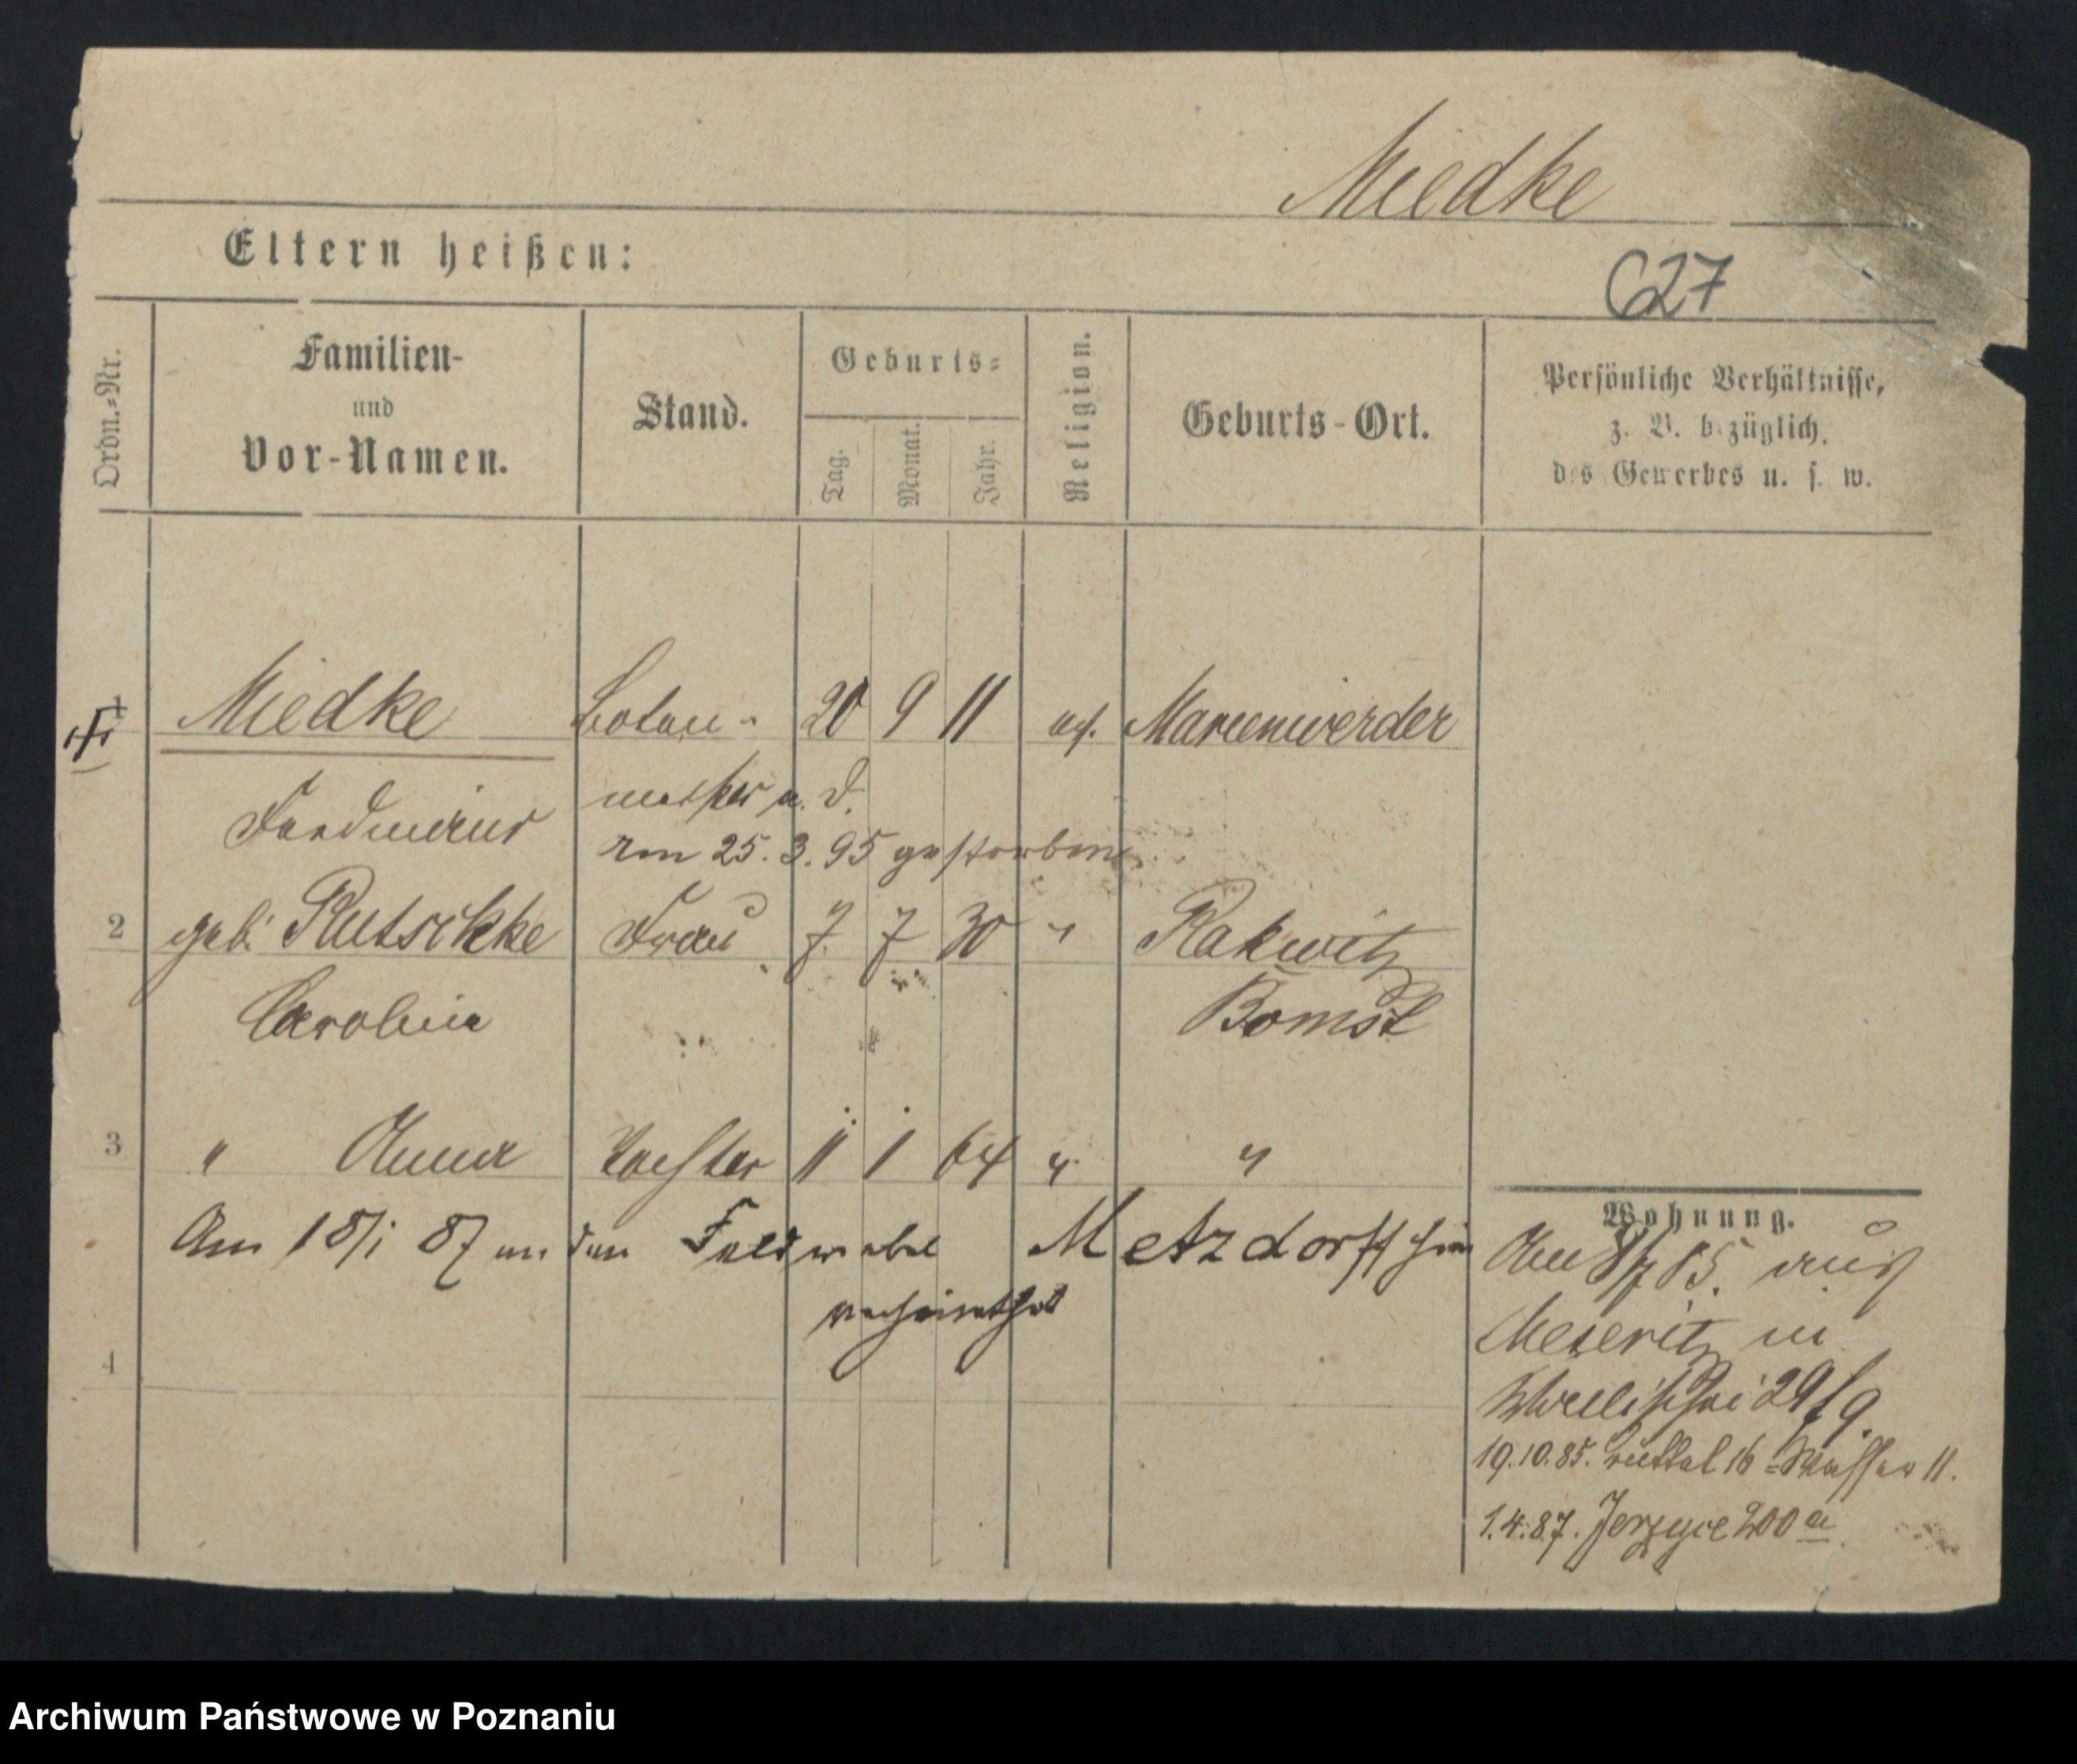 Miedke
Eltern heißen:
627
Ordn.-Nr.
Familien-
und
Vor-Namen.
Stand.
Geburts-
Tag.
Monat.
Jahr.
Religion.
Geburts-Ort.
Persönliche Verhältnisse,
z. B. bezüglich
des Gewerbes u. s. w.
1 Miedke Boten- 20 9 11 ev. Marienwerder
Ferdinand meister a. D.
Am 25. 3. 95 gestorben
2 geb. Rutschke Frau 7. 7 30 " Rakwitz
Caroline Bomst
3 " Anna Tochter 11 1 64 " "
Am 18/1 87 an den Feldwebel Metzdorff hier
verheirathet
4
Wohnung.
Am 85. aus
Meseritz in
29/9.
19.10.85. 16 11.
1.4.87. Jerzyce 200 a
Archiwum Państwowe w Poznaniu